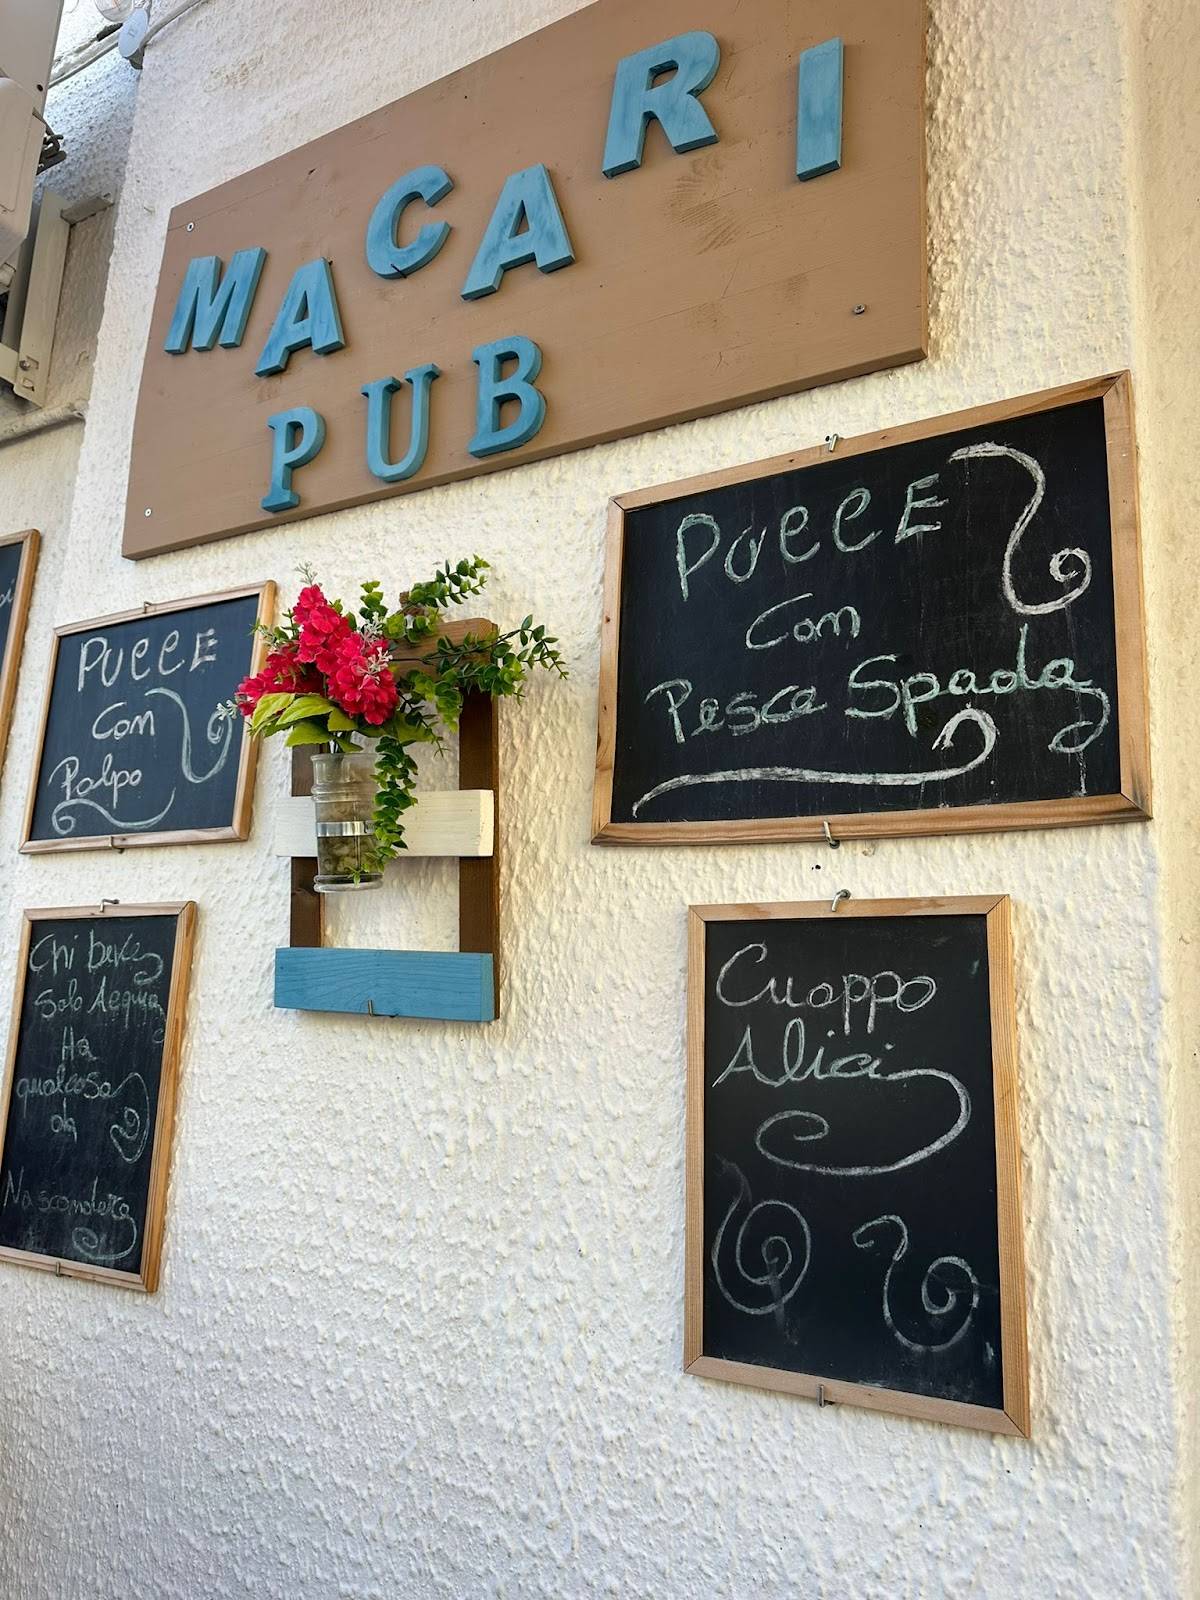 MACARI
PUB
PUCCE
Con
Pesce Spada
PUCCE
Con
Polpo
Chi beve
Solo Acqua
Ha
qualcosa
da
Nascondere
Cuoppo
Alici